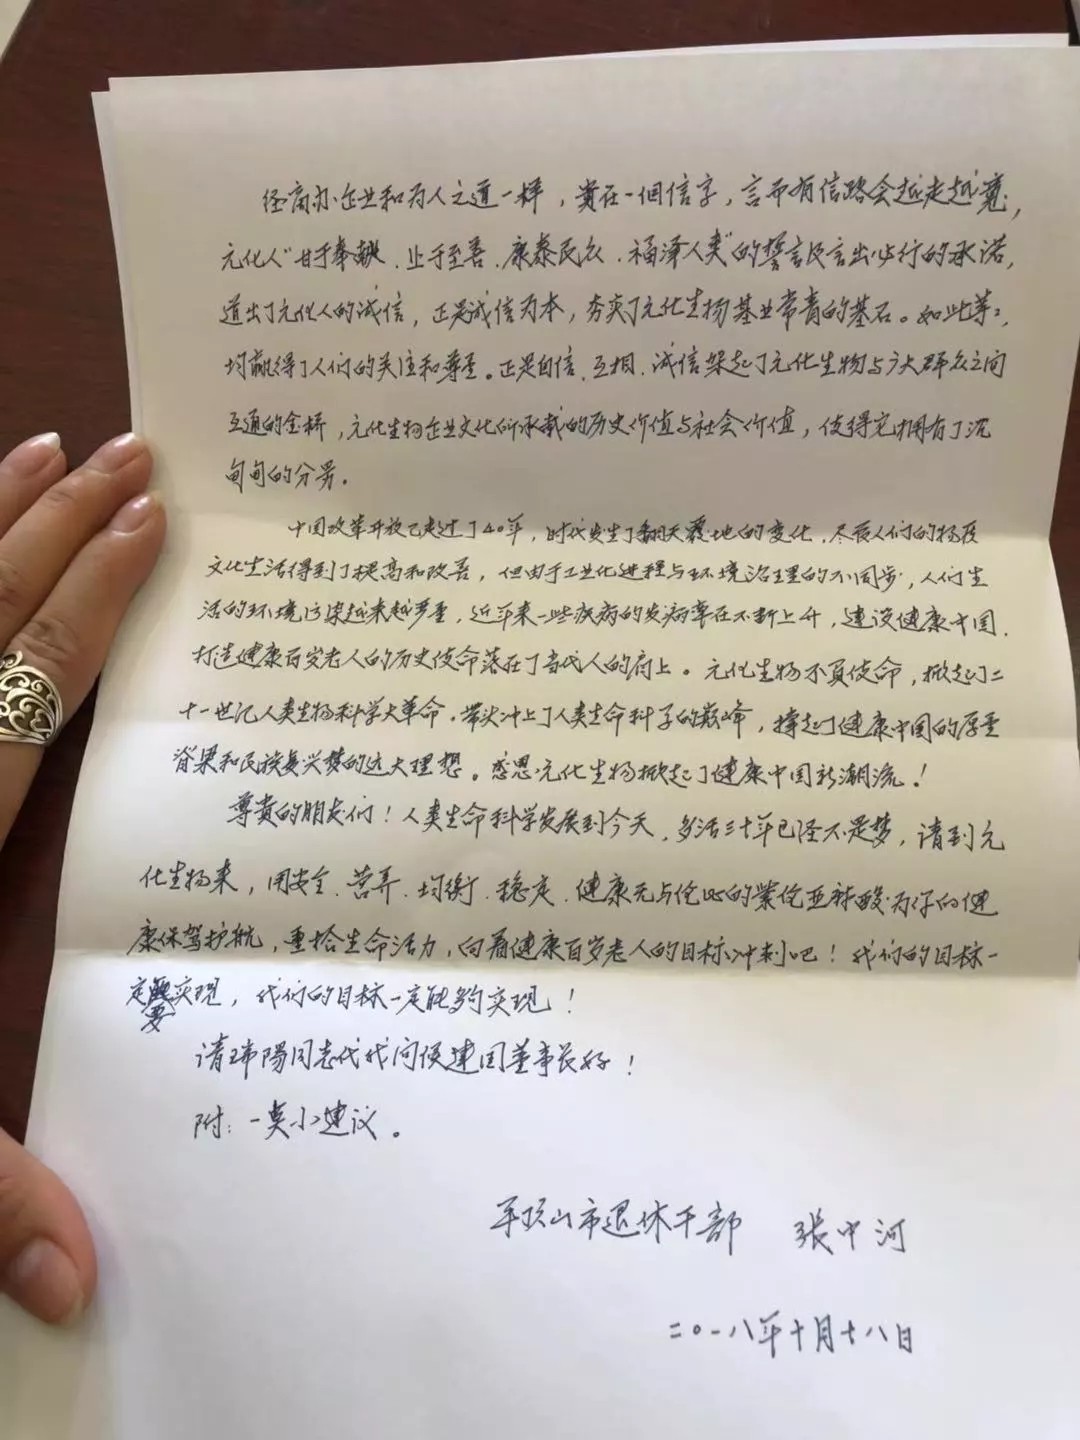 经商办企业和为人之道一样，贵在一個信字，言而有信路会越走越寬，
元化人“甘于奉献、止于至善、康泰民众、福泽人类”的誓言及言出必行的承诺，
道出了元化人的诚信，正是诚信为本，夯实了元化生物基业常青的基石。如此等等，
均赢得了人们的关注和尊重。正是自信、互相、诚信架起了元化生物与广大群众之间
互通的金桥，元化生物企业文化所承载的历史价值与社会价值，使得它拥有了沉
甸甸的分另。
中国改革开放已走过了40年，时代发生了翻天覆地的变化，尽管人们的物质
文化生活得到了提高和改善，但由于工业化进程与环境治理的不同步，人们生
活的环境污染越来越严重，近年来一些疾病的发病率在不断上升，建设健康中国、
打造健康百岁老人的历史使命落在了当代人的肩上。元化生物不负使命，掀起了二
十一世纪人类生物科学大革命，带头冲上了人类生命科学的巅峰，撑起了健康中国的厚重
脊梁和民族复兴梦的远大理想。感恩元化生物掀起了健康中国新潮流！
尊貴的朋友们！人类生命科学发展到今天，多活三十年已经不是梦，请到元
化生物来，用安全、营养、均衡、稳定、健康无与伦比的紫伦亚麻酸为你的健
康保驾护航，重拾生命活力，向着健康百岁老人的目标冲刺吧！我们的目标一
定要实现，我们的目标一定能够实现！
请玮陽同志代我问侯建国董事长好！
附：一奌小建议。
平顶山市退休干部 张中河
二〇一八年十月十八日